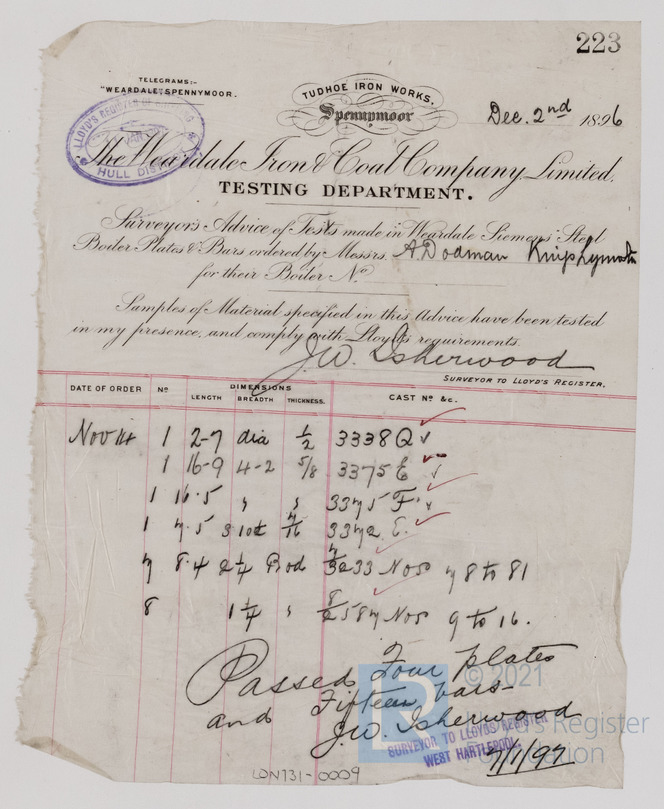 223
TELEGRAMS:-
"WEARDALE", SPENNYMOOR.
TUDHOE IRON WORKS,
Spennymoor
Dec. 2nd 1896
LLOYD'S REGISTER OF
HULL DIST
The Weardale Iron & Coal Company, Limited,
TESTING DEPARTMENT.
Surveyor's Advice of Tests made in Weardale Siemens' Steel
Boiler Plates & Bars ordered by Messrs. A Dodman
for their Boiler No.
Samples of Material specified in this Advice have been tested
in my presence, and comply with Lloyd's requirements.
J.W. Isherwood
SURVEYOR TO LLOYD'S REGISTER.
DATE OF ORDER No DIMENSIONS CAST No &c.
LENGTH BREADTH THICKNESS.
1 2-7 dia 1/2 3338 Q
1 16-9 4-2 5/8 3375 E
1 16.5 " " 3375 F
1 7.5 7/16 3372 E.
7 8.4 2 1/4 Rod 3233 Nos 78 to 81
8 1 1/4 " 2587 Nos 9 to 16.
Passed Four plates
and Fifteen bars-
J.W. Isherwood
SURVEYOR TO LLOYD'S REGISTER
WEST HARTLEPOOL
7/1/97
© 2021
Lloyd's Register
Foundation
LDN731-0009